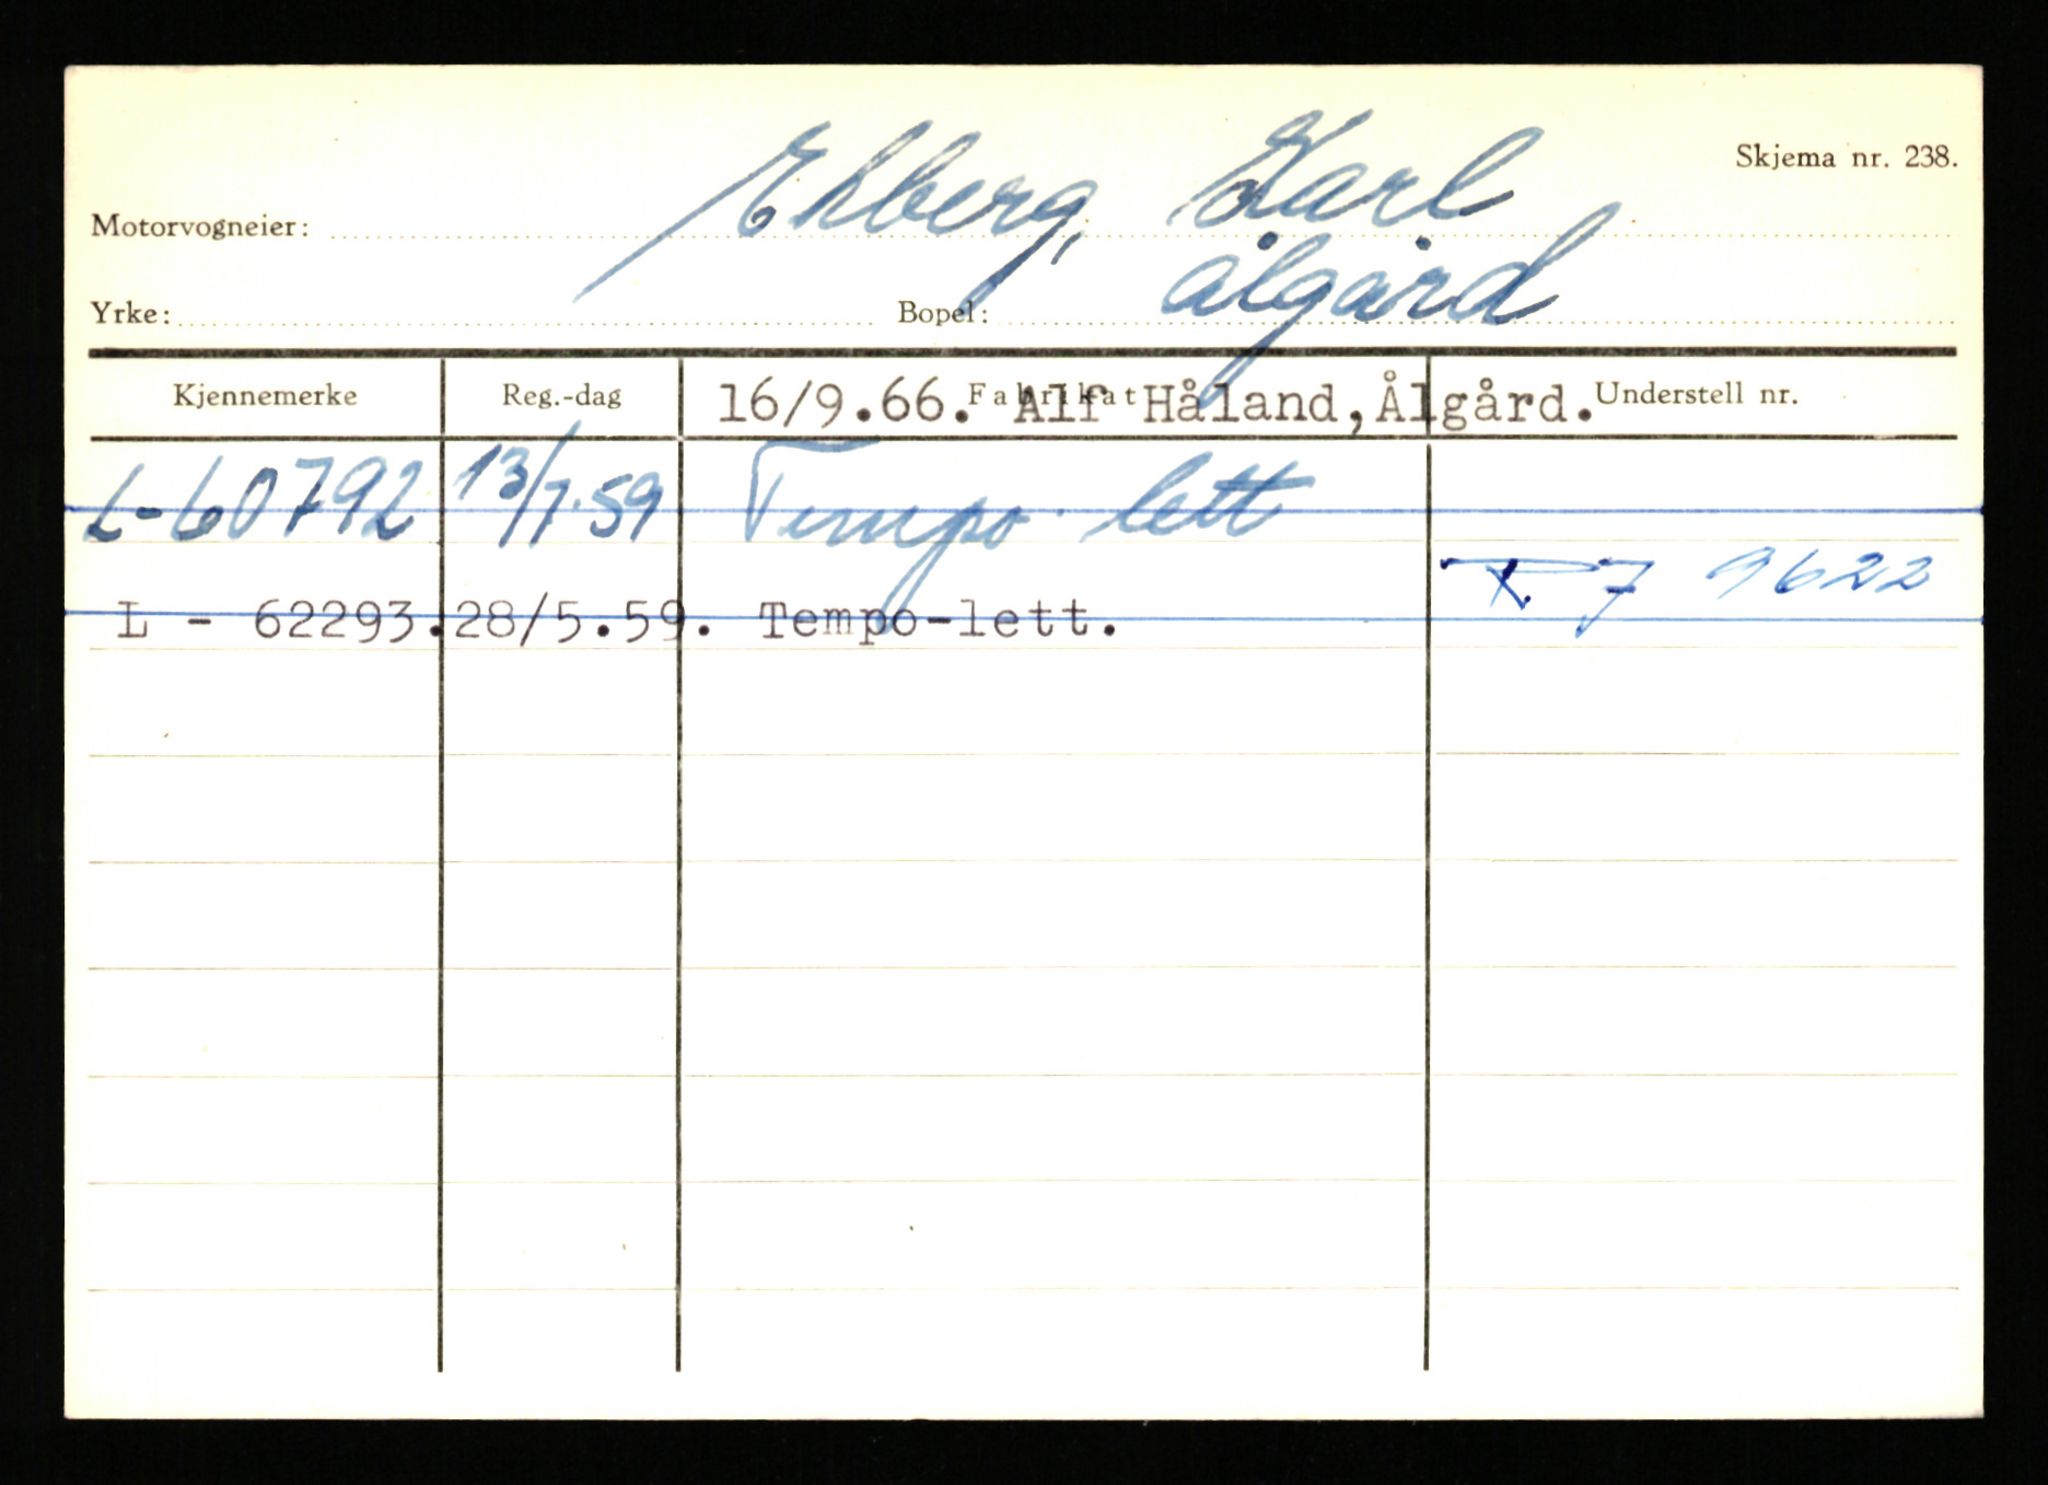 Skjema nr. 238.
Motorvogneier: Ekberg, Karl
Yrke: Bopel: Ålgård
Kjennemerke Reg.-dag Fabrikat Understell nr.
16/9.66. Alf Håland, Ålgård.
L-60792 13/7.59 Tempo lett
R7 9622
L - 62293. 28/5.59. Tempo-lett.